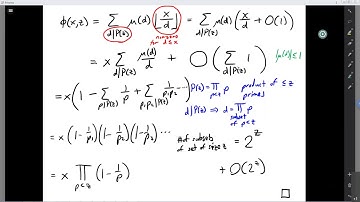 φ(x,z) = Σ_{d|P(z)} μ(d) ⌊x/d⌋ = Σ_{d|P(z)} μ(d) (x/d + O(1))
nonzero for d≤x
= x Σ_{d|P(z)} μ(d)/d + O(Σ_{d|P(z)} 1) |μ(d)|≤1
= x(1 - Σ_{p|P(z)} 1/p + Σ_{p₁p₂|P(z)} 1/p₁p₂ ...) P(z) = ∏_{p<z} p product of primes ≤ z
d|P(z) ⇒ d = ∏ p subset of p<z
= x(1-1/p₁)(1-1/p₂)(1-1/p₃)... # of subsets of set of size z = 2^z
= x ∏_{p<z} (1-1/p) + O(2^z)
□